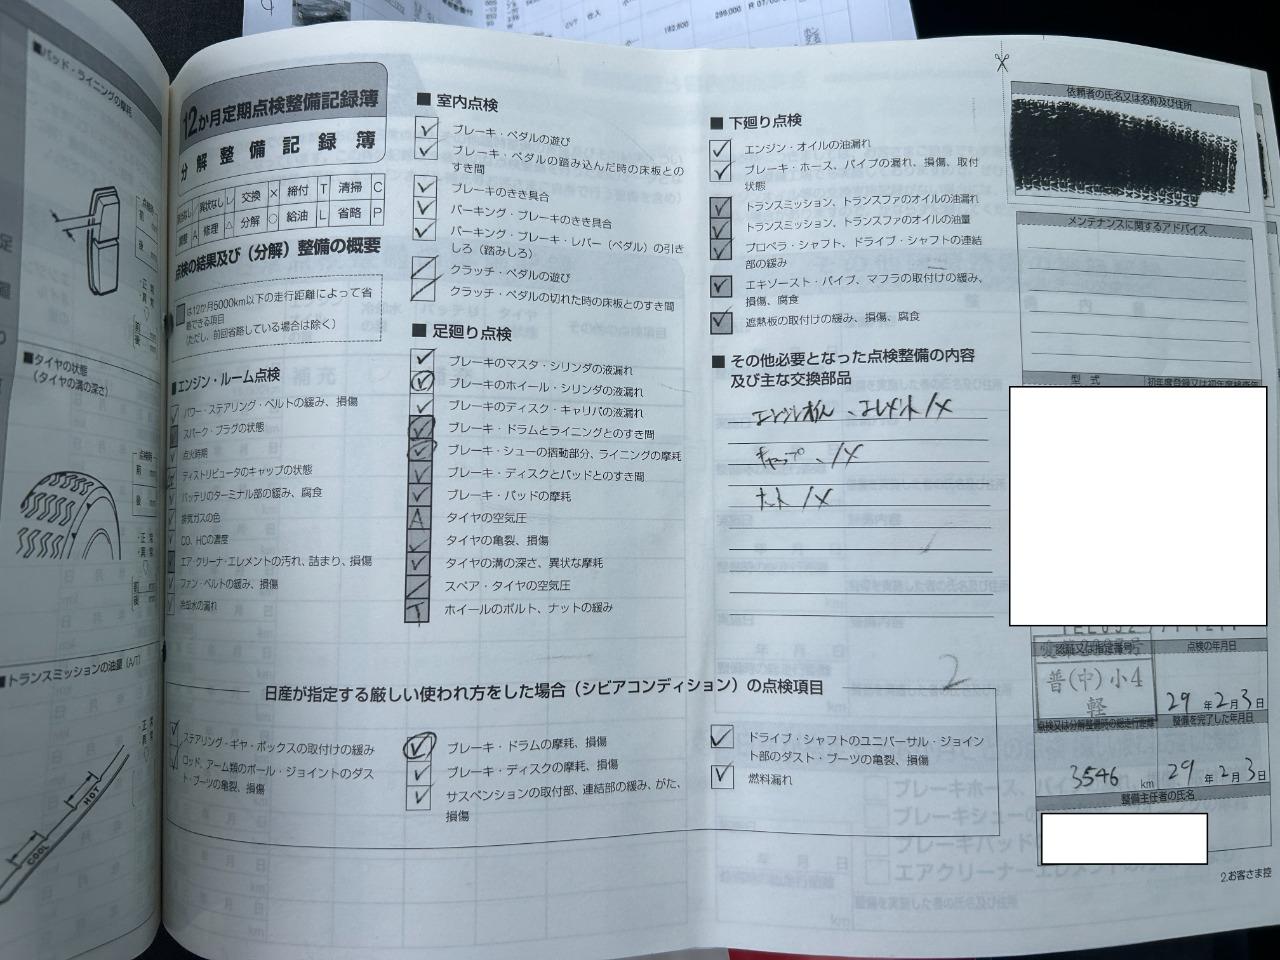 12か月定期点検整備記録簿
分解整備記録簿
交換 × 締付 T 清掃 C
A 修理 △ 分解 ○ 給油 L 省略 P
点検の結果及び（分解）整備の概要
は12か月5000km以下の走行距離によって省
略できる項目
（ただし、前回省略している場合は除く）
■エンジン・ルーム点検
パワー・ステアリング・ベルトの緩み、損傷
スパーク・プラグの状態
点火時期
ディストリビュータのキャップの状態
バッテリのターミナル部の緩み、腐食
排気ガスの色
CO、HCの濃度
エア・クリーナ・エレメントの汚れ、詰まり、損傷
ファン・ベルトの緩み、損傷
冷却水の漏れ
■室内点検
ブレーキ・ペダルの遊び
ブレーキ・ペダルの踏み込んだ時の床板との
すき間
ブレーキのきき具合
パーキング・ブレーキのきき具合
パーキング・ブレーキ・レバー（ペダル）の引き
しろ（踏みしろ）
クラッチ・ペダルの遊び
クラッチ・ペダルの切れた時の床板とのすき間
■足廻り点検
ブレーキのマスタ・シリンダの液漏れ
ブレーキのホイール・シリンダの液漏れ
ブレーキのディスク・キャリパの液漏れ
ブレーキ・ドラムとライニングとのすき間
ブレーキ・シューの摺動部分、ライニングの摩耗
ブレーキ・ディスクとパッドとのすき間
ブレーキ・パッドの摩耗
A タイヤの空気圧
タイヤの亀裂、損傷
タイヤの溝の深さ、異状な摩耗
スペア・タイヤの空気圧
T ホイールのボルト、ナットの緩み
■下廻り点検
エンジン・オイルの油漏れ
ブレーキ・ホース、パイプの漏れ、損傷、取付
状態
トランスミッション、トランスファのオイルの油漏れ
トランスミッション、トランスファのオイルの油量
プロペラ・シャフト、ドライブ・シャフトの連結
部の緩み
エキゾースト・パイプ、マフラの取付けの緩み、
損傷、腐食
遮熱板の取付けの緩み、損傷、腐食
■その他必要となった点検整備の内容
及び主な交換部品
エレメント/×
キャップ、/×
ナット/×
2
日産が指定する厳しい使われ方をした場合（シビアコンディション）の点検項目
ステアリング・ギヤ・ボックスの取付けの緩み
ロッド、アーム類のボール・ジョイントのダス
ト・ブーツの亀裂、損傷
ブレーキ・ドラムの摩耗、損傷
ブレーキ・ディスクの摩耗、損傷
サスペンションの取付部、連結部の緩み、がた、
損傷
ドライブ・シャフトのユニバーサル・ジョイン
ト部のダスト・ブーツの亀裂、損傷
燃料漏れ
依頼者の氏名又は名称及び住所
メンテナンスに関するアドバイス
型式
認証又は指定番号
普(中)小4
軽
点検の年月日
29年2月3日
整備を完了した年月日
3546 km
29年2月3日
整備主任者の氏名
2.お客さま控
■パッド・ライニングの摩耗
■タイヤの状態
（タイヤの溝の深さ）
■トランスミッションの油量（A/T）
HOT
COOL